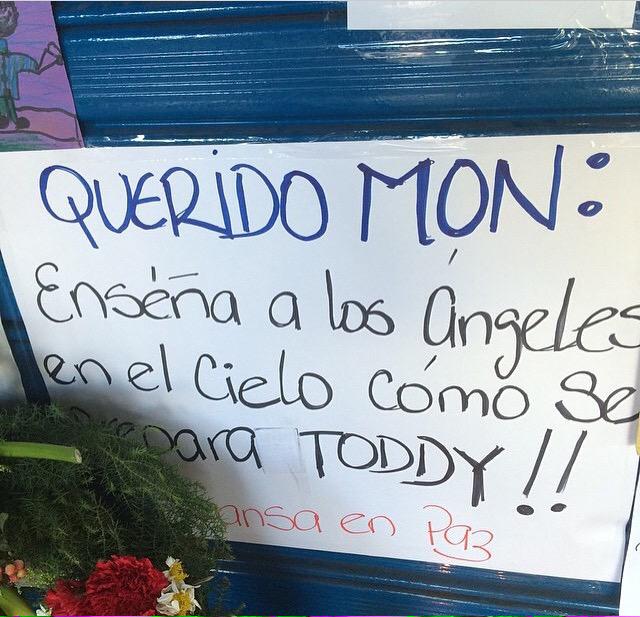 QUERIDO MON:
Enséña a los Ángeles
en el Cielo cómo Se
prepara TODDY!!
ansa en Paz